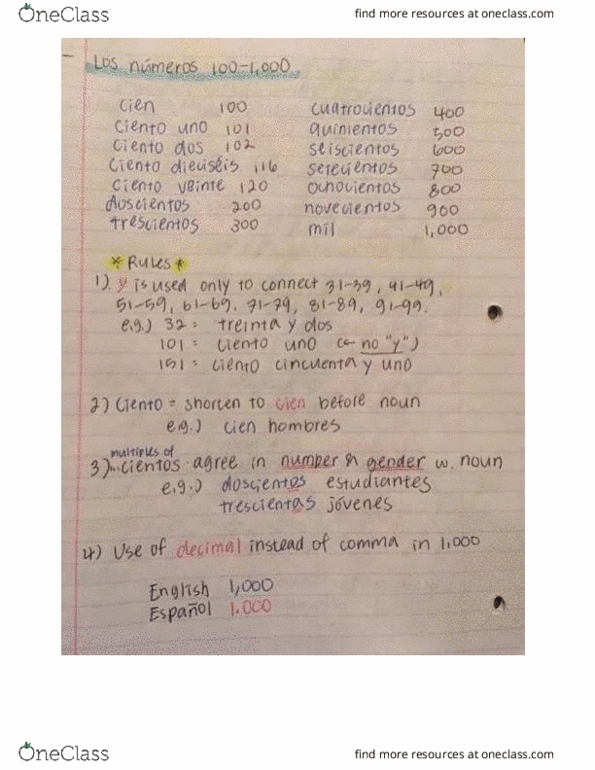 OneClass
find more resources at oneclass.com
Los números 100-1,000
cien 100
ciento uno 101
ciento dos 102
ciento dieciséis 116
ciento veinte 120
doscientos 200
trescientos 300
cuatrocientos 400
quinientos 500
seiscientos 600
setecientos 700
ochocientos 800
novecientos 900
mil 1,000
* Rules *
1). y is used only to connect 31-39, 41-49,
51-59, 61-69, 71-79, 81-89, 91-99.
e.g.) 32: treinta y dos
101: ciento uno (← no "y")
151: ciento cincuenta y uno
2) Ciento = shorten to cien before noun
e.g.) cien hombres
multiples of
3)...cientos - agree in number & gender w. noun
e.g.) doscientos estudiantes
trescientas jóvenes
4) Use of decimal instead of comma in 1,000
English 1,000
Español 1.000
OneClass
find more resources at oneclass.com